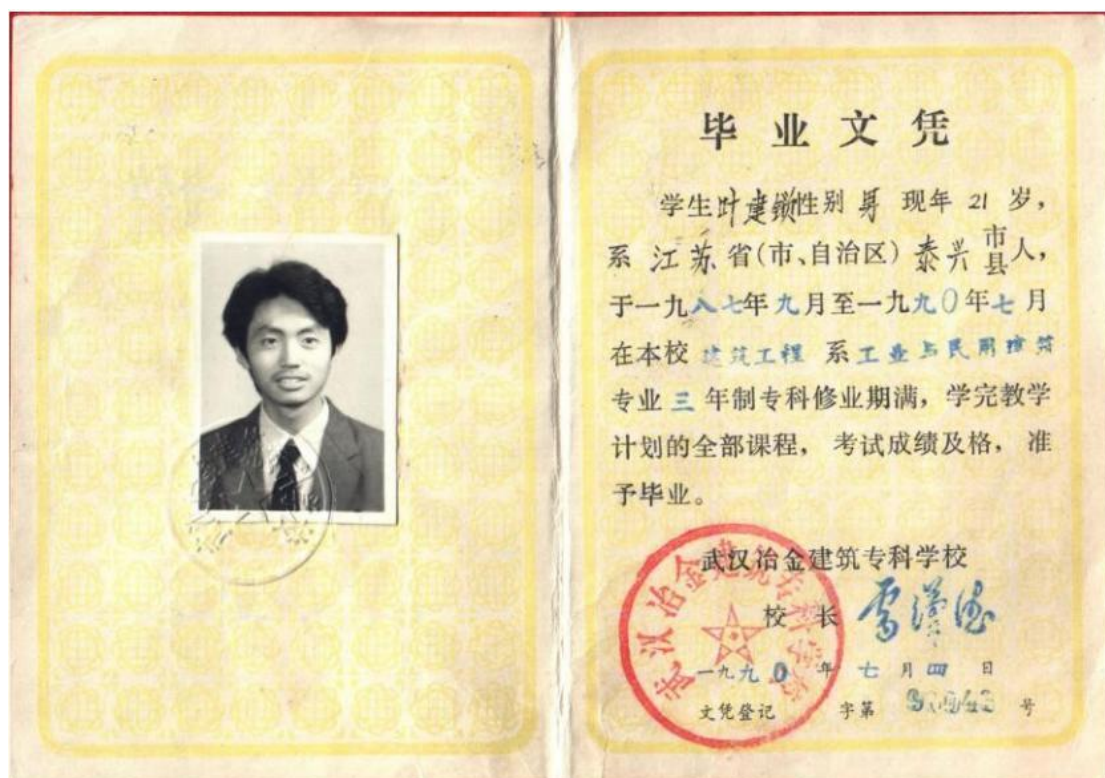 毕业文凭
学生叶建锁性别 男 现年 21 岁，
系 江苏 省(市、自治区) 泰兴 市县人，
于一九八七年九月至一九九0年七月
在本校 建筑工程 系 工业与民用建筑
专业 三 年制专科修业期满，学完教学
计划的全部课程，考试成绩及格，准
予毕业。
武汉冶金建筑专科学校
校 长
一九九0 年 七 月 四 日
文凭登记 字第 号
武汉冶金建筑专科学校